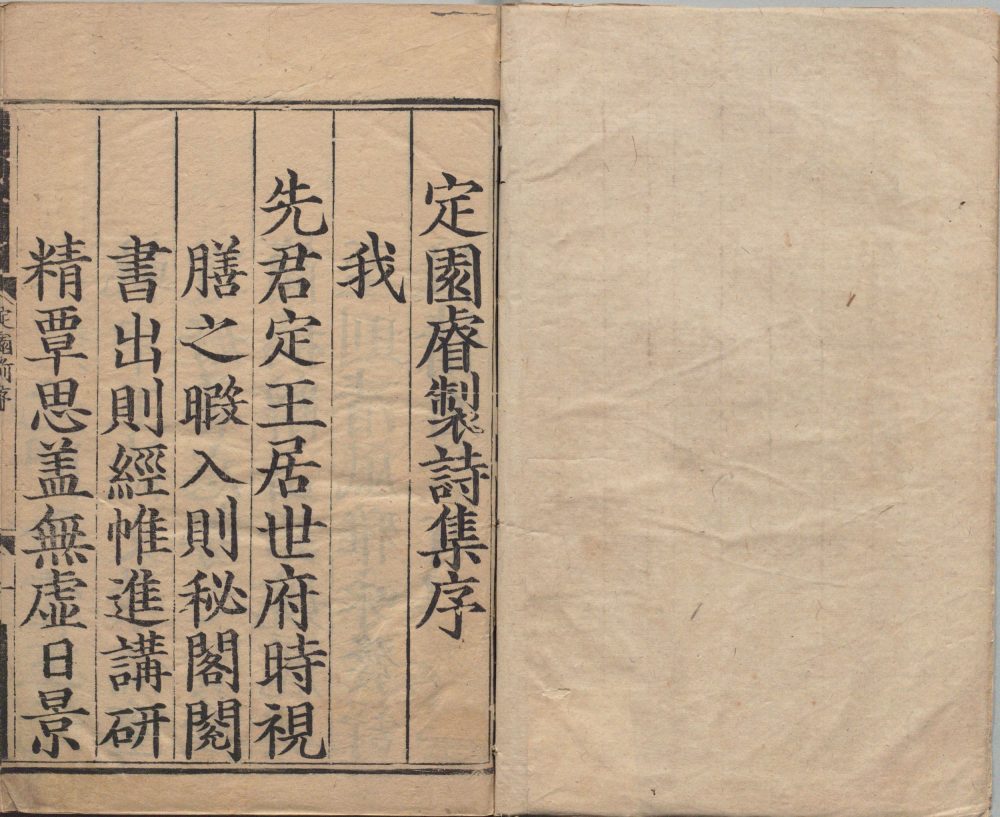 定園睿製詩集序
我
先君定王居世府時視
膳之暇入則秘閣閱
書出則經帷進講研
精覃思盖無虛日景